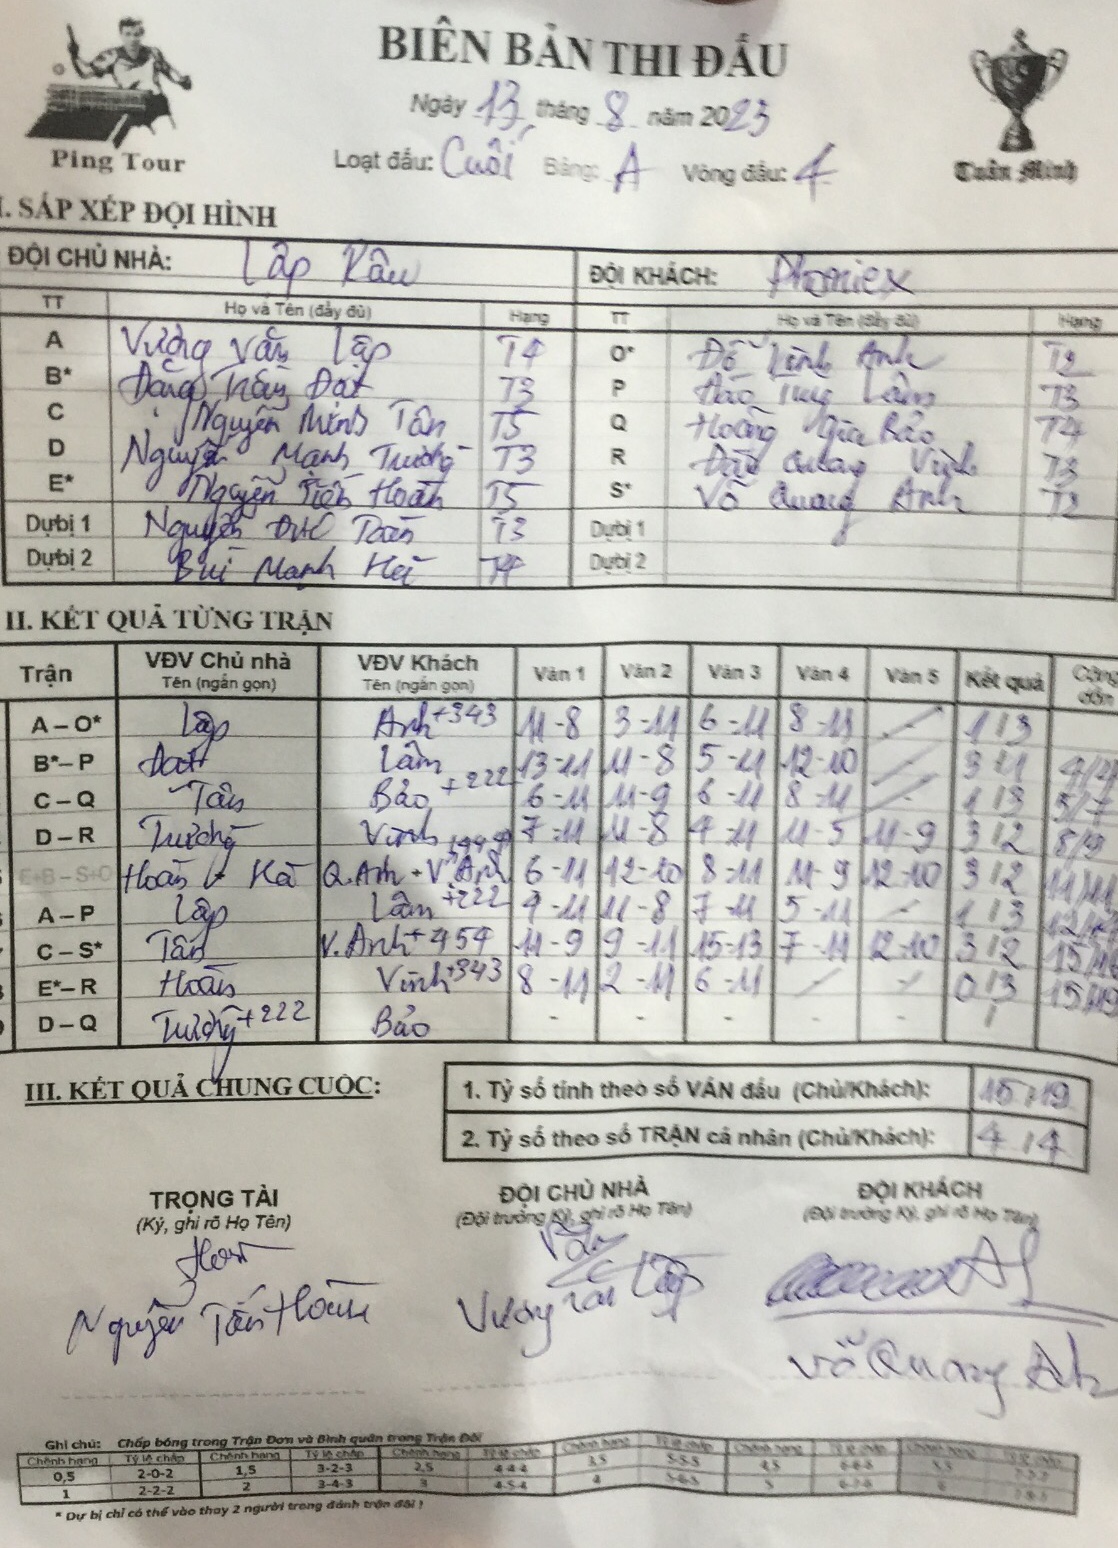 BIÊN BẢN THI ĐẤU
Ngày 13 tháng 8 năm 2023
Ping Tour
Loạt đấu: Cuối Bảng: A Vòng đấu: 4
Tuấn Minh
I. SẮP XẾP ĐỘI HÌNH
ĐỘI CHỦ NHÀ: Lập Râu ĐỘI KHÁCH: Phoniex
TT Họ và Tên (đầy đủ) Hạng TT Họ và Tên (đầy đủ) Hạng
A Vương Văn Lập T4 O* Đỗ Linh Anh T2
B* Đặng Trần Đạt T3 P Đào Tùng Lâm T3
C Nguyễn Minh Tân T5 Q Hoàng Gia Bảo T4
D Nguyễn Mạnh Trường T3 R Đậu Quang Vinh T3
E* Nguyễn Tiến Hoàn T5 S* Võ Quang Anh T2
Dự bị 1 Nguyễn Đức Toàn T3 Dự bị 1
Dự bị 2 Bùi Mạnh T4 Dự bị 2
II. KẾT QUẢ TỪNG TRẬN
Trận VĐV Chủ nhà VĐV Khách Ván 1 Ván 2 Ván 3 Ván 4 Ván 5 Kết quả Cộng dồn
Tên (ngắn gọn) Tên (ngắn gọn)
A – O* Lập Anh +343 11-8 3-11 6-11 8-11 1/3
B* – P Đạt Lâm 13-11 11-8 5-11 12-10 3/1 4/4
C – Q Tân Bảo +222 6-11 11-9 6-11 8-11 1/3 5/7
D – R Trường Vinh 7-11 11-8 4-11 11-5 11-9 3/2 8/9
E+B – S+O Hoàn + Q.Anh + V.Anh 6-11 12-10 8-11 11-9 12-10 3/2 11/11
A – P Lập Lâm +222 9-11 11-8 7-11 5-11 - 1/3 12/14
C – S* Tân V.Anh +454 11-9 9-11 15-13 7-11 12-10 3/2 15/16
E* – R Hoàn Vinh +343 8-11 2-11 6-11 0/3 15/19
D – Q Trường +222 Bảo - - - - - /
III. KẾT QUẢ CHUNG CUỘC:
1. Tỷ số tính theo số VÁN đấu (Chủ/Khách): 15/19
2. Tỷ số theo số TRẬN cá nhân (Chủ/Khách): 4/4
TRỌNG TÀI ĐỘI CHỦ NHÀ ĐỘI KHÁCH
(Ký, ghi rõ Họ Tên) (Đội trưởng Ký, ghi rõ Họ Tên) (Đội trưởng Ký, ghi rõ Họ Tên)
Vương Văn Lập
Võ Quang Anh
Ghi chú: Chấp bóng trong Trận Đơn và Bình quân trong Trận Đôi
Chênh hạng Tỷ lệ chấp Chênh hạng Tỷ lệ chấp Chênh hạng Tỷ lệ chấp Chênh hạng Tỷ lệ chấp Chênh hạng Tỷ lệ chấp Chênh hạng Tỷ lệ chấp
0,5 2-0-2 1,5 3-2-3 2,5 4-4-4 3,5 5-5-5 4,5
1 2-2-2 2 3-4-3 3 4-5-4 4 5-6-5 5 6-7-6 6
* Dự bị chỉ có thể vào thay 2 người trong đánh trận đôi !